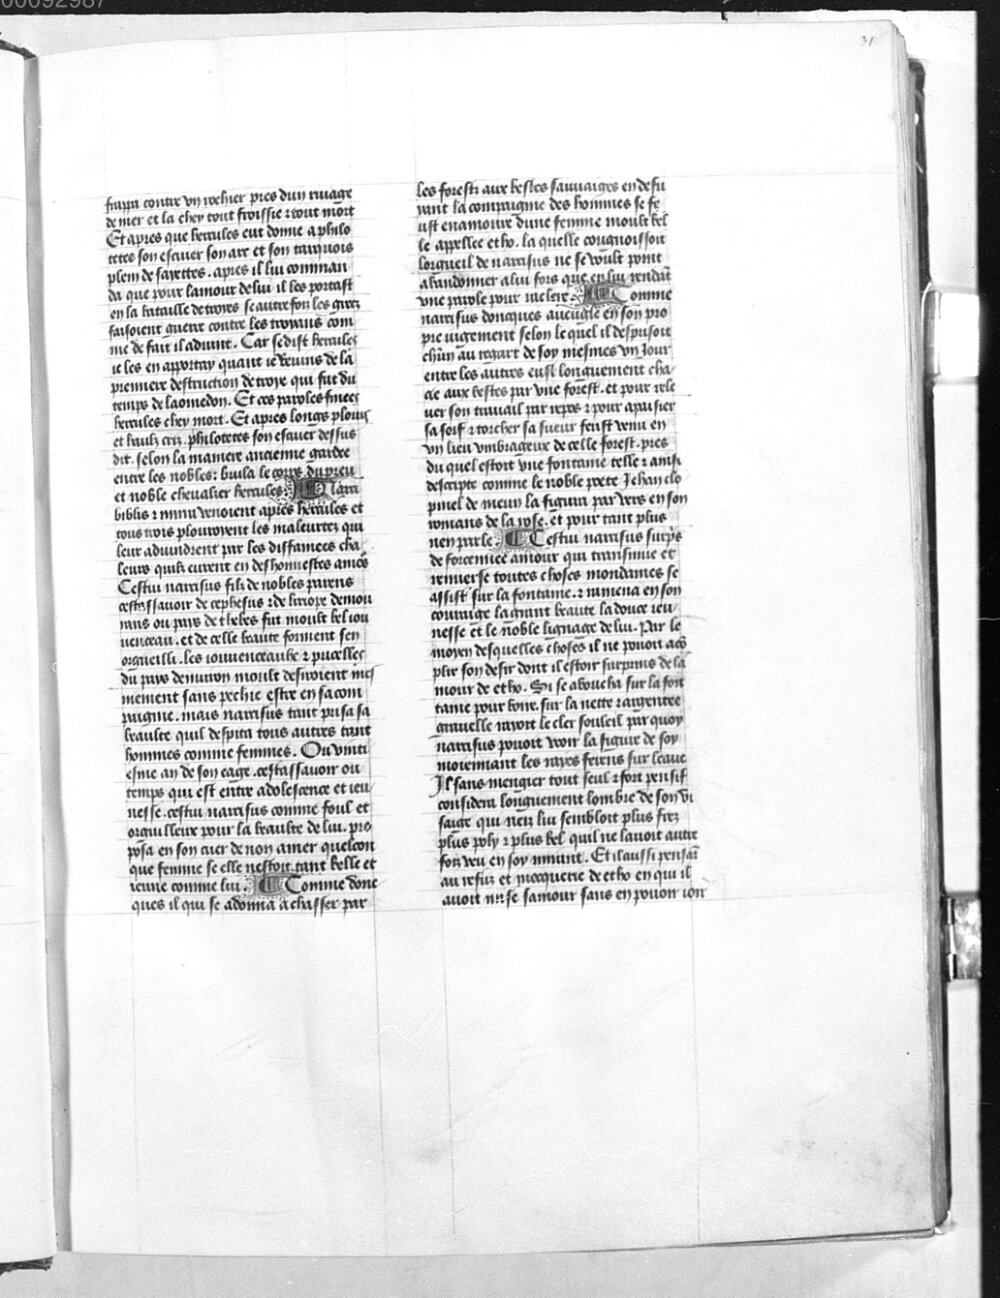 00092987
31
frappa contre vn rochier pres dun riuage
de mer et la chey tout froissie ⁊ tout mort
Et apres que hercules eut donne a philo
tetes son escuier son arc et son tarquois
plein de sayettes. apres il lui comman
da que pour lamour de lui il les portast
en la bataille de troyes se autre fois les grez
faisoient guerre contre les troyans com
me de fait il aduint. Car se dist hercules
ie les en apportay quant ie reuins de la
premiere destruction de troye qui fut du
temps de laomedon. Et ces paroles finees
hercules chey mort. Et apres longs plours
et haulz criz. philotetes son escuier dessus
dit. selon la maniere ancienne gardee
entre les nobles: brula le corps du preu
et noble cheualier hercules. Narci
biblis ⁊ mirra venoient apres hercules et
tous trois plouroyent les maleurtez qui
leur aduindrent par les diffamees cha
leurs quilz eurent en deshonnestes amors
Cestui narcisus filz de nobles parens
cestassauoir de cephesus ⁊ de liriope demou
rans ou pays de thebes fut moult bel iou
uenceau. et de celle beaute forment sen
orgueilli. les iouuenceaulx ⁊ pucelles
du pays denuiron moult desiroient mes
mement sans pechie estre en sa com
paignie. mais narcisus tant prisa sa
beaulte quil despita tous autres tant
hommes comme femmes. Ou vinti
esme an de son eage. cestassauoir ou
temps qui est entre adolescence et ieu
nesse. cestui narcisus comme foul et
orguilleux pour la beaulte de lui. pro
posa en son cuer de non amer quelcon
que femme se elle nestoit tant belle et
ieune comme lui. Comme donc
ques il qui se adonna a chasser par
les forestz aux bestes sauuaiges en defu
yant la compaignie des hommes se fe
ust enamouree dune femme moult bel
le appellee echo. la quelle congnoissoit
lorgueil de narcisus ne se voult point
abandonner a lui fors que en lui rendant
vne parole pour . Comme
narcisus doncques aueugle en son pro
pre iugement selon le quel il desprisoit
chun au regart de soy mesmes vn iour
entre les autres eust longuement cha
cie aux bestes par vne forest. et pour rele
uer son trauail par repos ⁊ pour apaisier
sa soif ⁊ torcher sa sueur feust venu en
vn lieu vmbrageux de celle forest. pres
du quel estoit vne fontaine telle ⁊ ainsi
descripte comme le noble poete Jehan clo
pinel de meun la figura par vers en son
romans de la rose. et pour tant plus
nen parle. Cestui narcisus surpris
de forcennee amour qui transmue et
renuerse toutes choses mondaines se
assist sur la fontaine. ⁊ ramena en son
couraige la grant beaute la douce ieu
nesse et le noble lignage de lui. Par le
moyen desquelles choses il ne pouoit acō
plir son desir dont il estoit surprins de la
mour de echo. Si se aboucha sur la fon
taine pour boire. sur la nette ⁊ argentee
grauelle rayoit le cler souleil par quoy
narcisus pouoit veoir la figure de soy
moiennant les rayes ferens sur leaue
Il sans mengier tout seul ⁊ fort pensif
considera longuement lombre de son vi
saige qui neiz lui sembloit plus frez
plus poly ⁊ plus bel quil ne lauoit autre
fois veu en soy mirant. Et il aussi pensāt
au refuz et mocquerie de echo en qui il
auoit mise samour sans en pouoir ioir